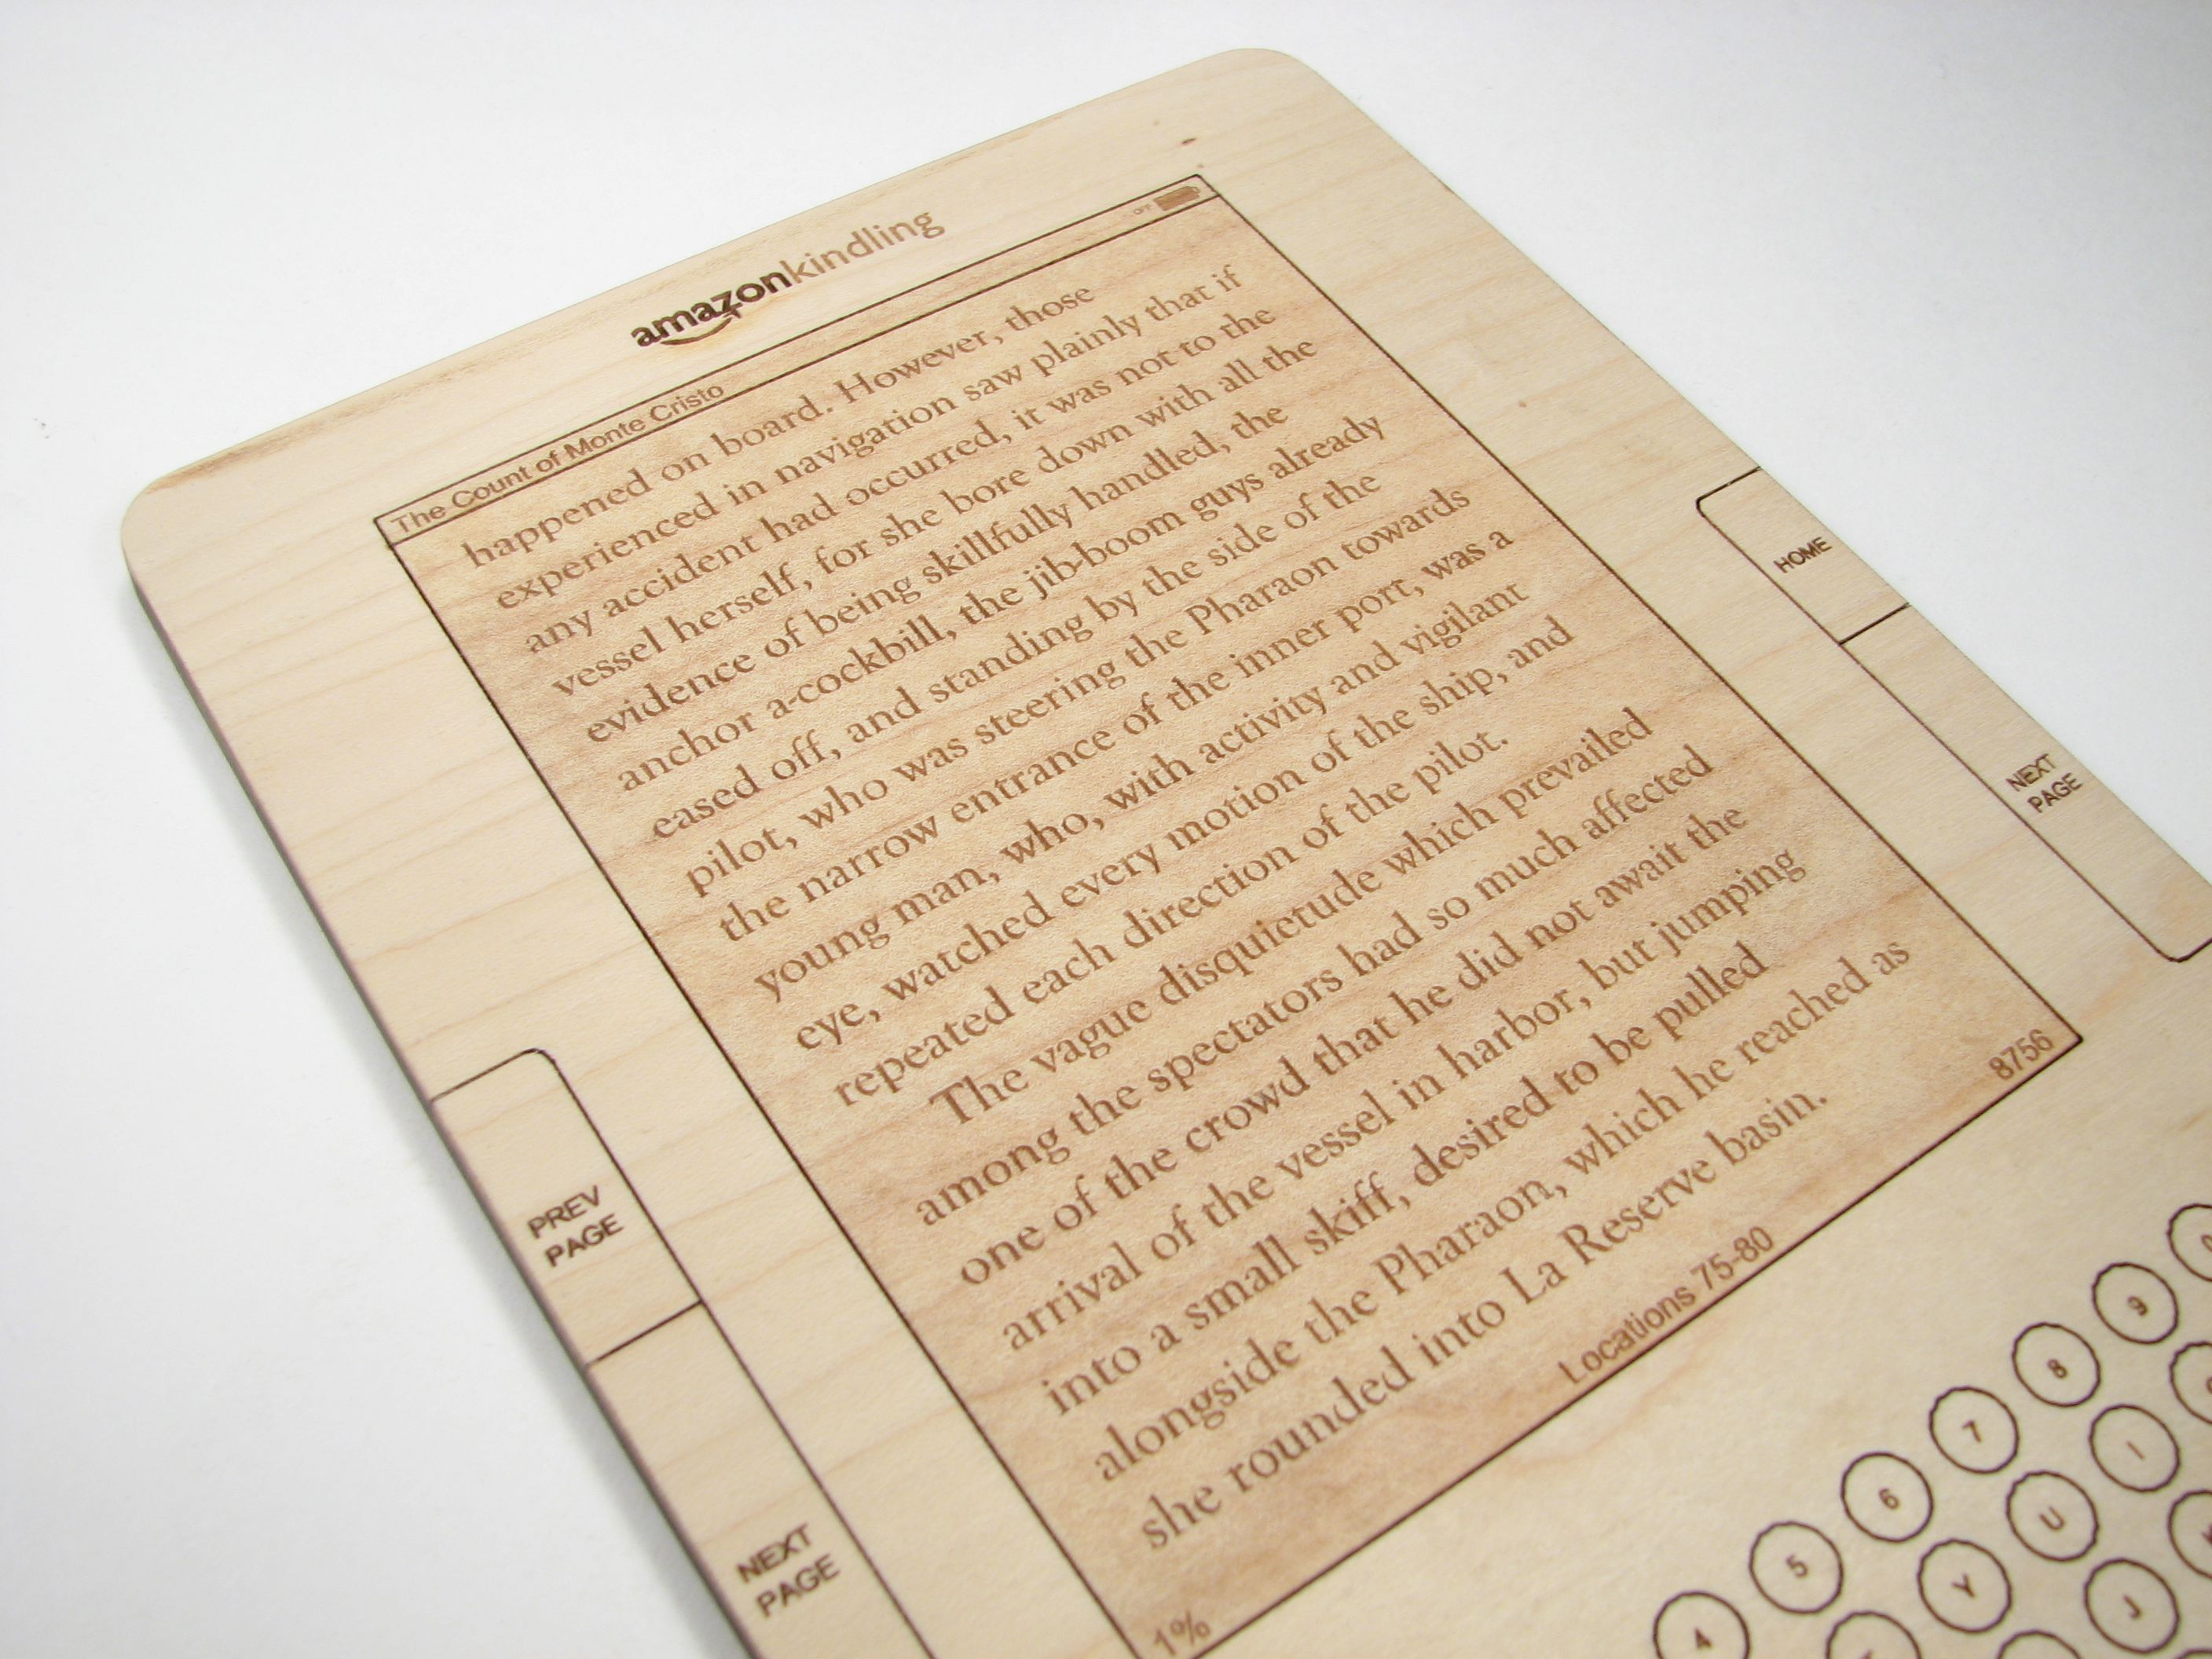 amazonkindling
The Count of Monte Cristo
happened on board. However, those
experienced in navigation saw plainly that if
any accident had occurred, it was not to the
vessel herself, for she bore down with all the
evidence of being skillfully handled, the
anchor a-cockbill, the jib-boom guys already
eased off, and standing by the side of the
pilot, who was steering the Pharaon towards
the narrow entrance of the inner port, was a
young man, who, with activity and vigilant
eye, watched every motion of the ship, and
repeated each direction of the pilot.
The vague disquietude which prevailed
among the spectators had so much affected
one of the crowd that he did not await the
arrival of the vessel in harbor, but jumping
into a small skiff, desired to be pulled
alongside the Pharaon, which he reached as
she rounded into La Reserve basin.
1%
Locations 75-80
8756
HOME
NEXT
PAGE
PREV
PAGE
NEXT
PAGE
4 5 6 7 8 9
Y U I
J